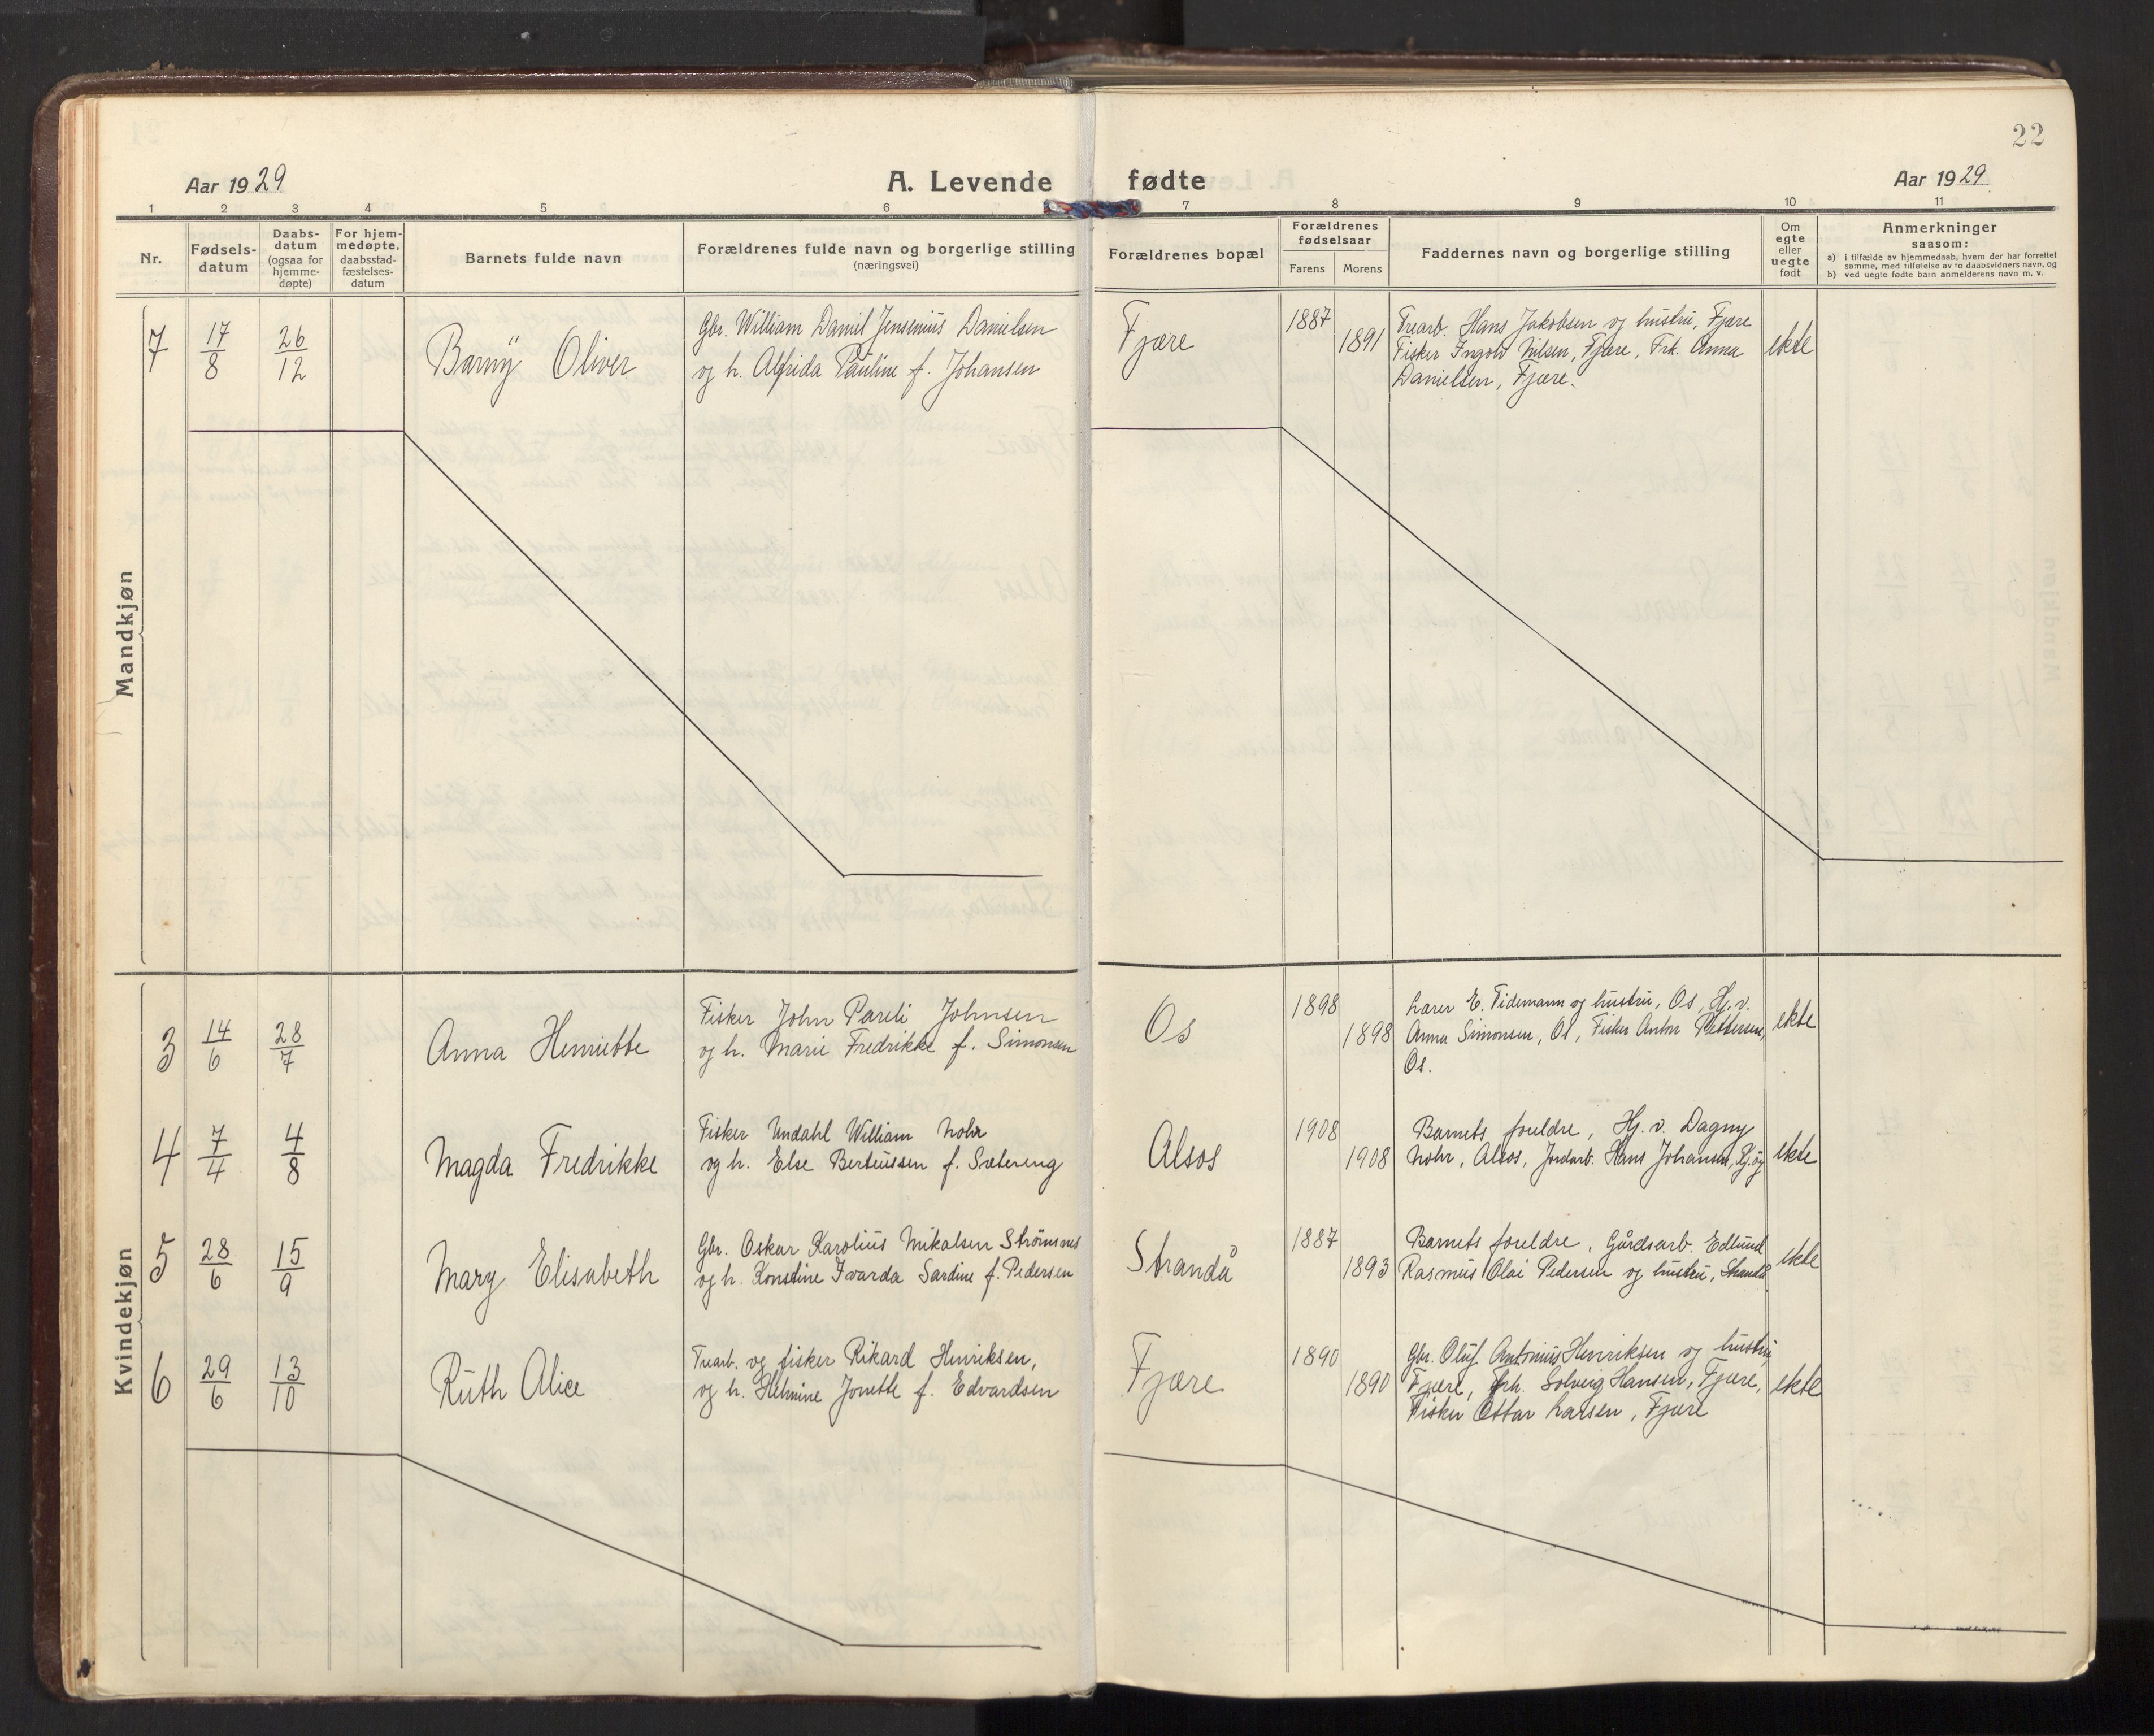 22
Aar 1929
A. Levende fødte
Aar 1929
1 2 3 4 5 6 7 8 9 10 11
Nr.
Fødsels-
datum
Daabs-
datum
(ogsaa for
hjemme-
døpte)
For hjem-
medøpte,
daabsstad-
fæstelses-
datum
Barnets fulde navn
Forældrenes fulde navn og borgerlige stilling
(næringsvei)
Forældrenes bopæl
Forældrenes
fødselsaar
Farens Morens
Faddernes navn og borgerlige stilling
Om
egte
eller
uegte
født
Anmerkninger
saasom:
a) i tilfælde av hjemmedaab, hvem der har forrettet
samme, med tilføielse av to daabsvidners navn, og
b) ved uegte fødte barn anmelderens navn m. v.
Mandkjøn
7 17/8 26/12 Barny Oliver
Gbr. William Daniel Jensenius Danielsen
og h. Alfrida Pauline f. Johansen
Fjære 1887 1891
Trearb. Hans Jakobsen og hustru, Fjære
Fisker Ingolv Nilsen, Fjære, Frk. Anna
Danielsen, Fjære.
ekte
Kvindekjøn
3 14/6 28/7 Anna Henriette
Fisker John Pareli Johnsen
og h. Marie Fredrikke f. Simonsen
Os 1898 1898
Lærer E. Tidemann og hustru, Os, Hj. v.
Anna Simonsen, Os, Fisker Anton Pettersen,
Os.
ekte
4 7/4 4/8 Magda Fredrikke
Fisker Undahl William Nohr
og h. Else Berteussen f. Sætereng
Alsos 1908 1908
Barnets foreldre, Hj. v. Dagny
Nohr, Alsos, Jordarb. Hans Johansen,
ekte
5 28/6 15/9 Mary Elisabeth
Gbr. Oskar Karolius Mikalsen Strømsnes
og h. Konstine Ivarda Sardine f. Pedersen
Strandå 1887 1893
Barnets foreldre, Gårdsarb. Edlund
Rasmus Olai Pedersen og hustru, Strandå
ekte
6 29/6 13/10 Ruth Alice
Trearb. og fisker Rikard Henriksen,
og h. Helmine Jonette f. Edvardsen
Fjære 1890 1890
Gbr. Oluf Antonius Henriksen og hustru
Fjære, Frk. Solveig Hansen, Fjære,
Fisker Ottar Larsen, Fjære
ekte